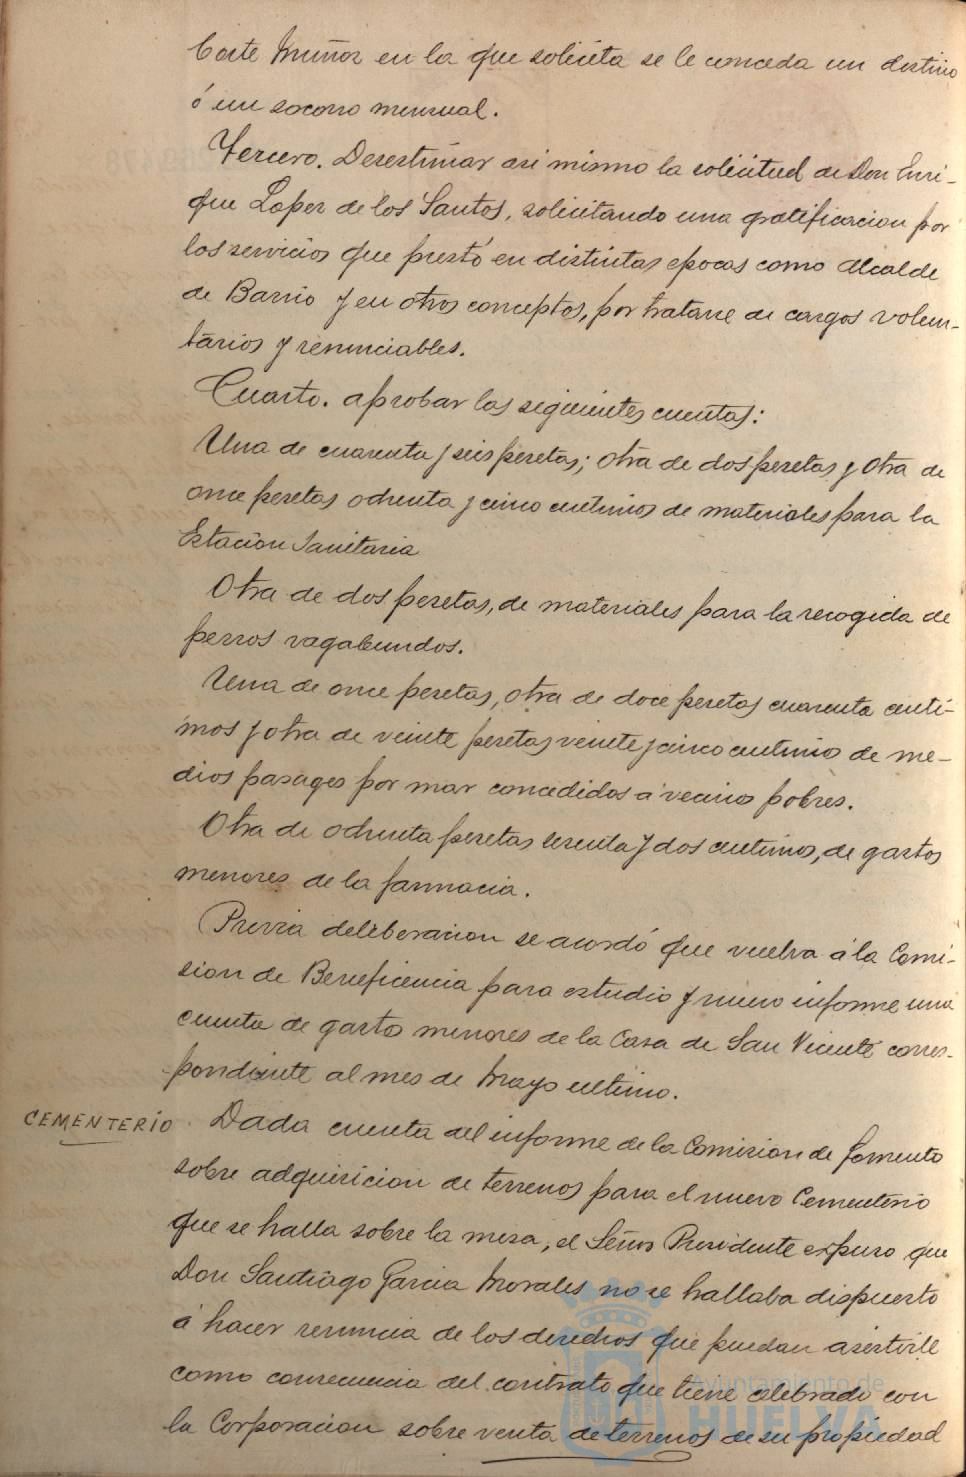 Corte Muñoz en la que solicita se le conceda un destino
ó un socorro mensual.
Tercero. Desestimar asi mismo la solicitud de Don Enri-
que Lopez de los Santos, solicitando una gratificacion por
los servicios que prestó en distintas epocas como Alcalde
de Barrio y en otros conceptos, por tratarse de cargos volun-
tarios y renunciables.
Cuarto. aprobar las siguientes cuentas:
Una de cuarenta y seis pesetas; otra de dos pesetas y otra de
once pesetas ochenta y cinco centimos de materiales para la
Estacion Sanitaria
Otra de dos pesetas, de materiales para la recogida de
perros vagabundos.
Una de once pesetas, otra de doce pesetas cuarenta centi-
mos y otra de veinte pesetas veinte y cinco centimos de me-
dios pasages por mar concedidos á vecinos pobres.
Otra de ochenta pesetas sesenta y dos centimos, de gastos
menores de la farmacia.
Previa deliberacion se acordó que vuelva á la Comi-
sion de Beneficencia para estudio y nuevo informe una
cuenta de gastos menores de la Casa de San Vicente corres-
pondiente al mes de Mayo ultimo.
CEMENTERIO
Dada cuenta del informe de la Comision de Fomento
sobre adquisicion de terrenos para el nuevo Cementerio
que se halla sobre la mesa, el Señor Presidente expuso que
Don Santiago Garcia Morales no se hallaba dispuesto
á hacer renuncia de los derechos que puedan asistirle
como consecuencia del contrato que tiene celebrado con
la Corporacion sobre venta de terrenos de su propiedad
Ayuntamiento de
HUELVA